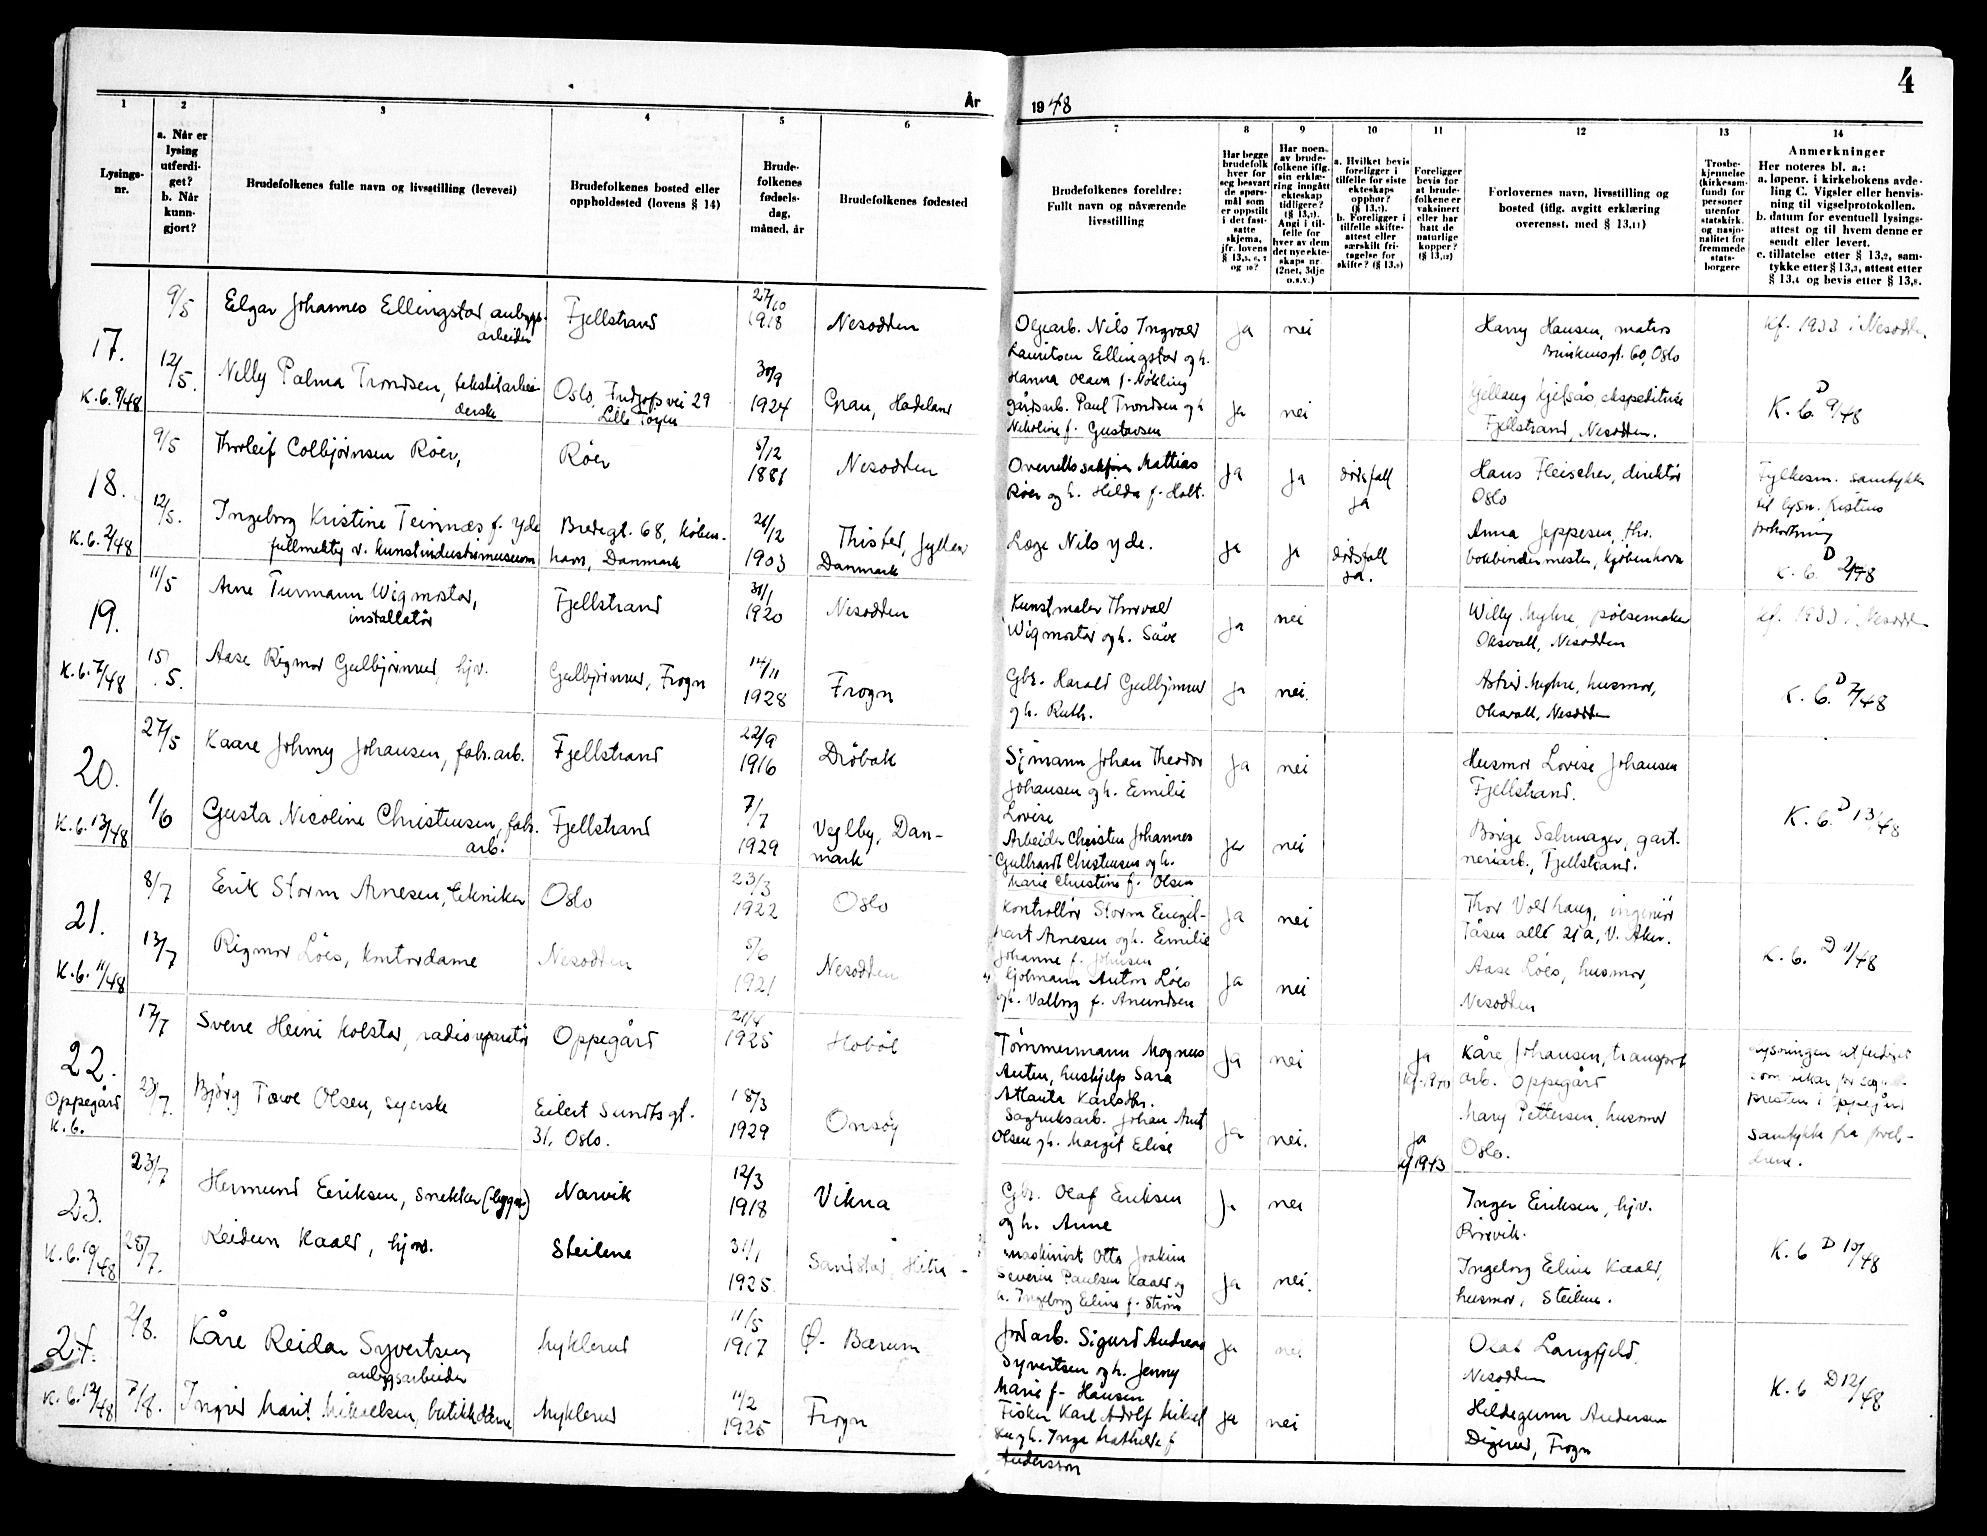 4
År
19 48
1
2
3
4
5
6
7
8
9
10
11
12
13
14
Lysings-
nr.
a. Når er
lysing
utferdi-
get?
b. Når
kunn-
gjort?
Brudefolkenes fulle navn og livsstilling (levevei)
Brudefolkenes bosted eller
oppholdssted (lovens § 14)
Brude-
folkenes
fødsels-
dag,
måned, år
Brudefolkenes fødested
Brudefolkenes foreldre:
Fullt navn og nåværende
livsstilling
Har begge
brudefolk
hver for
seg besvart
de spørs-
mål som
er oppstilt
i det fast-
satte
skjema,
jfr. lovens
§ 13,5, 6, 7
og 10?
Har noen
av brude-
folkene iflg.
sin erklæ-
ring inngått
ekteskap
tidligere?
(§ 13,7).
Angi i til-
felle for
hver av dem
det nye ekte-
skaps nr.
(2net, 3dje
o.s.v.)
a. Hvilket bevis
foreligger i
tilfelle for siste
ekteskaps
opphør?
(§ 13,7).
b. Foreligger i
tilfelle skifte-
attest eller
særskilt fri-
tagelse for
skifte? (§ 13,9)
Foreligger
bevis for
at brude-
folkene er
vaksinert
eller har
hatt de
naturlige
kopper?
(§ 13,12)
Forlovernes navn, livsstilling og
bosted (iflg. avgitt erklæring
overensst. med § 13,11)
Trosbe-
kjennelse
(kirkesam-
fund) for
personer
utenfor
statskirk.
og nasjo-
nalitet for
fremmede
stats-
borgere
Anmerkninger
Her noteres bl. a.:
a. løpenr. i kirkebokens avde-
ling C. Vigsler eller henvis-
ning til vigselprotokollen.
b. datum for eventuell lysings-
attest og til hvem denne er
sendt eller levert.
c. tillatelse etter § 13,2, sam-
tykke etter § 13,3, attest etter
§ 13,4 og bevis etter § 13,8.
17.
K.b. 9/48
9/5
12/5.
Elgar Johannes Ellingstad anleggs-
arbeider
Fjellstrand
27/10
1918
Nesodden
Nelly Palma Trondsen, tekstilarbei-
derske
Oslo, Fridtjofs vei 29
Lille Tøyen
30/9
1924
Gran, Hadeland
Oljearb. Nils Ingvald
Lauritsen Ellingstad og h.
Hanna Olava f. Nökling
ja
nei
Harry Hansen, matros
Brinkensgt. 60, Oslo
Kf. 1933 i Nesodden
Gårdsarb. Paul Trondsen og h.
Nikoline f. Gustavsen
ja
nei
Gjellaug Kjelsås ekspeditrise
Fjellstrand, Nesodden.
K. b. D 9/48
18.
K.b. 2/48
9/5
12/5.
Thorleif Colbjørnsen Röer,
Röer
5/12
1881
Nesodden
Ingeborg Kristine Teinnæs f. Yde
fullmektig v. kunstindustrimuseum
Bredegt. 68, Köben-
havn, Danmark
26/12
1903
Thisted, Jylland
Danmark
Overrettssakfører Mattias
Röer og h. Hilda f. Holt.
ja
ja
dödsfall
ja
Hans Fleischer, direktör
Oslo
Fylkesm. samtykke
til lysn. fristens
forkortning
Læge Nils Yde.
ja
ja
dödsfall
ja.
Anna Jeppesen, fhv.
bokbindermester, Kjöbenhavn
K. b. D 2/48
19.
K.b. 7/48
11/5
15/5.
Arne Turmann Wigmostad,
installatör
Fjellstrand
31/1
1920
Nesodden
Aase Rigmor Gulbjörnrud, hjv.
Gulbjörnrud, Frogn
14/11
1928
Frogn
Kunstmaler Thorvald
Wigmostad og h. Säve
ja
nei
Willy Myhre, pölsemaker
Oksvall, Nesodden
Kf. 1933 i Nesodden
Gbr. Harald Gulbjörnrud
og h. Ruth.
ja
nei.
Astrid Myhre, husmor,
Oksvall, Nesodden
K. b. D 7/48
20.
K.b. 13/48
27/5
1/6
Kaare Johnny Johansen, fabr.arb.
Fjellstrand
22/9
1916
Dröbak
Gusta Nicoline Christensen, fabr.
arb.
Fjellstrand
7/7
1929
Veglby, Dan-
mark
Sjömann Johan Theodor
Johansen og h. Emilie
Lovise
ja
nei
Husmor Lovise Johansen
Fjellstrand.
K. b. D 13/48
Arbeider Christen Johannes
Gulbrandt Christensen og h.
Marie Christine f. Olsen
ja
nei
Börge Salmager, gart-
neriarb., Fjellstrand.
21.
K.b. 11/48
8/7
13/7
Erik Storm Arnesen, tekniker
Oslo
23/3
1922
Oslo
Rigmor Löes, kontordame
Nesodden
5/6
1921
Nesodden
Kontrollör Storm Engel-
hart Arnesen og h. Emilie
Johanne f. Johnsen
ja
nei
Thor Volthaug, ingeniör
Tåsen allé 21a, V. Aker.
Sjömann Anton Löes
og h. Valborg f. Amundsen
ja
nei
Aase Löes, husmor,
Nesodden
K. b. D 11/48
22.
Oppegård
K.b.
17/7
23/7.
Sverre Heini Kolstad, radioreparatör
Oppegård
21/4
1925
Hobøl
Bjørg Tove Olsen, syerske
Eilert Sundts gt.
31, Oslo.
18/3
1929
Onsøy
Tömmermann Magnus
Anton, hushjelp Sara
Atlanta Karlsdtr.
ja
nei
ja
Kåre Johansen, transport
arb. Oppegård
Lysningen utferdiget
som vikar for sogne-
presten i Oppegård
Sagbruksarb. Johan Arnt
Olsen og h. Margit Elise
ja
nei.
ja
kf 1943
Mary Pettersen, husmor
Oslo.
samtykke fra forel-
drene.
23.
K.b. 10/48
23/7
28/7.
Hermund Eriksen, snekker (bygn.)
Narvik
12/3
1918
Vikna
Reidun Kaald, hjv.
Steilene
31/1
1925.
Sandstad, Hitra
Gbr. Olaf Eriksen
og h. Anne
ja
nei
Inger Eriksen, hjv.
K. b D 10/48
Maskinist Otto Joakim
Severin Paulsen Kaald og
h. Ingeborg Eline f. Ström
ja
nei.
Ingeborg Eline Kaald,
husmor, Steilene.
24.
K.b. 12/48
2/8.
7/8.
Kåre Reidar Syvertsen,
anleggsarbeider
Myklerud
11/5
1917
Ø. Bærum
Ingrid Marit Mikaelsen, butikkdame
Myklerud
11/2
1925
Frogn
Jordarb. Sigurd Andreas
Syvertsen og h. Jenny
Marie f. Hansen
ja
nei
Olaf Langfjeld,
Nesodden
K. b D 12/48
Fisker Karl Adolf Mikael-
sen og h. Inga Mathilde f.
Andersson
ja
nei
Hildegunn Andersen
Digerud, Frogn